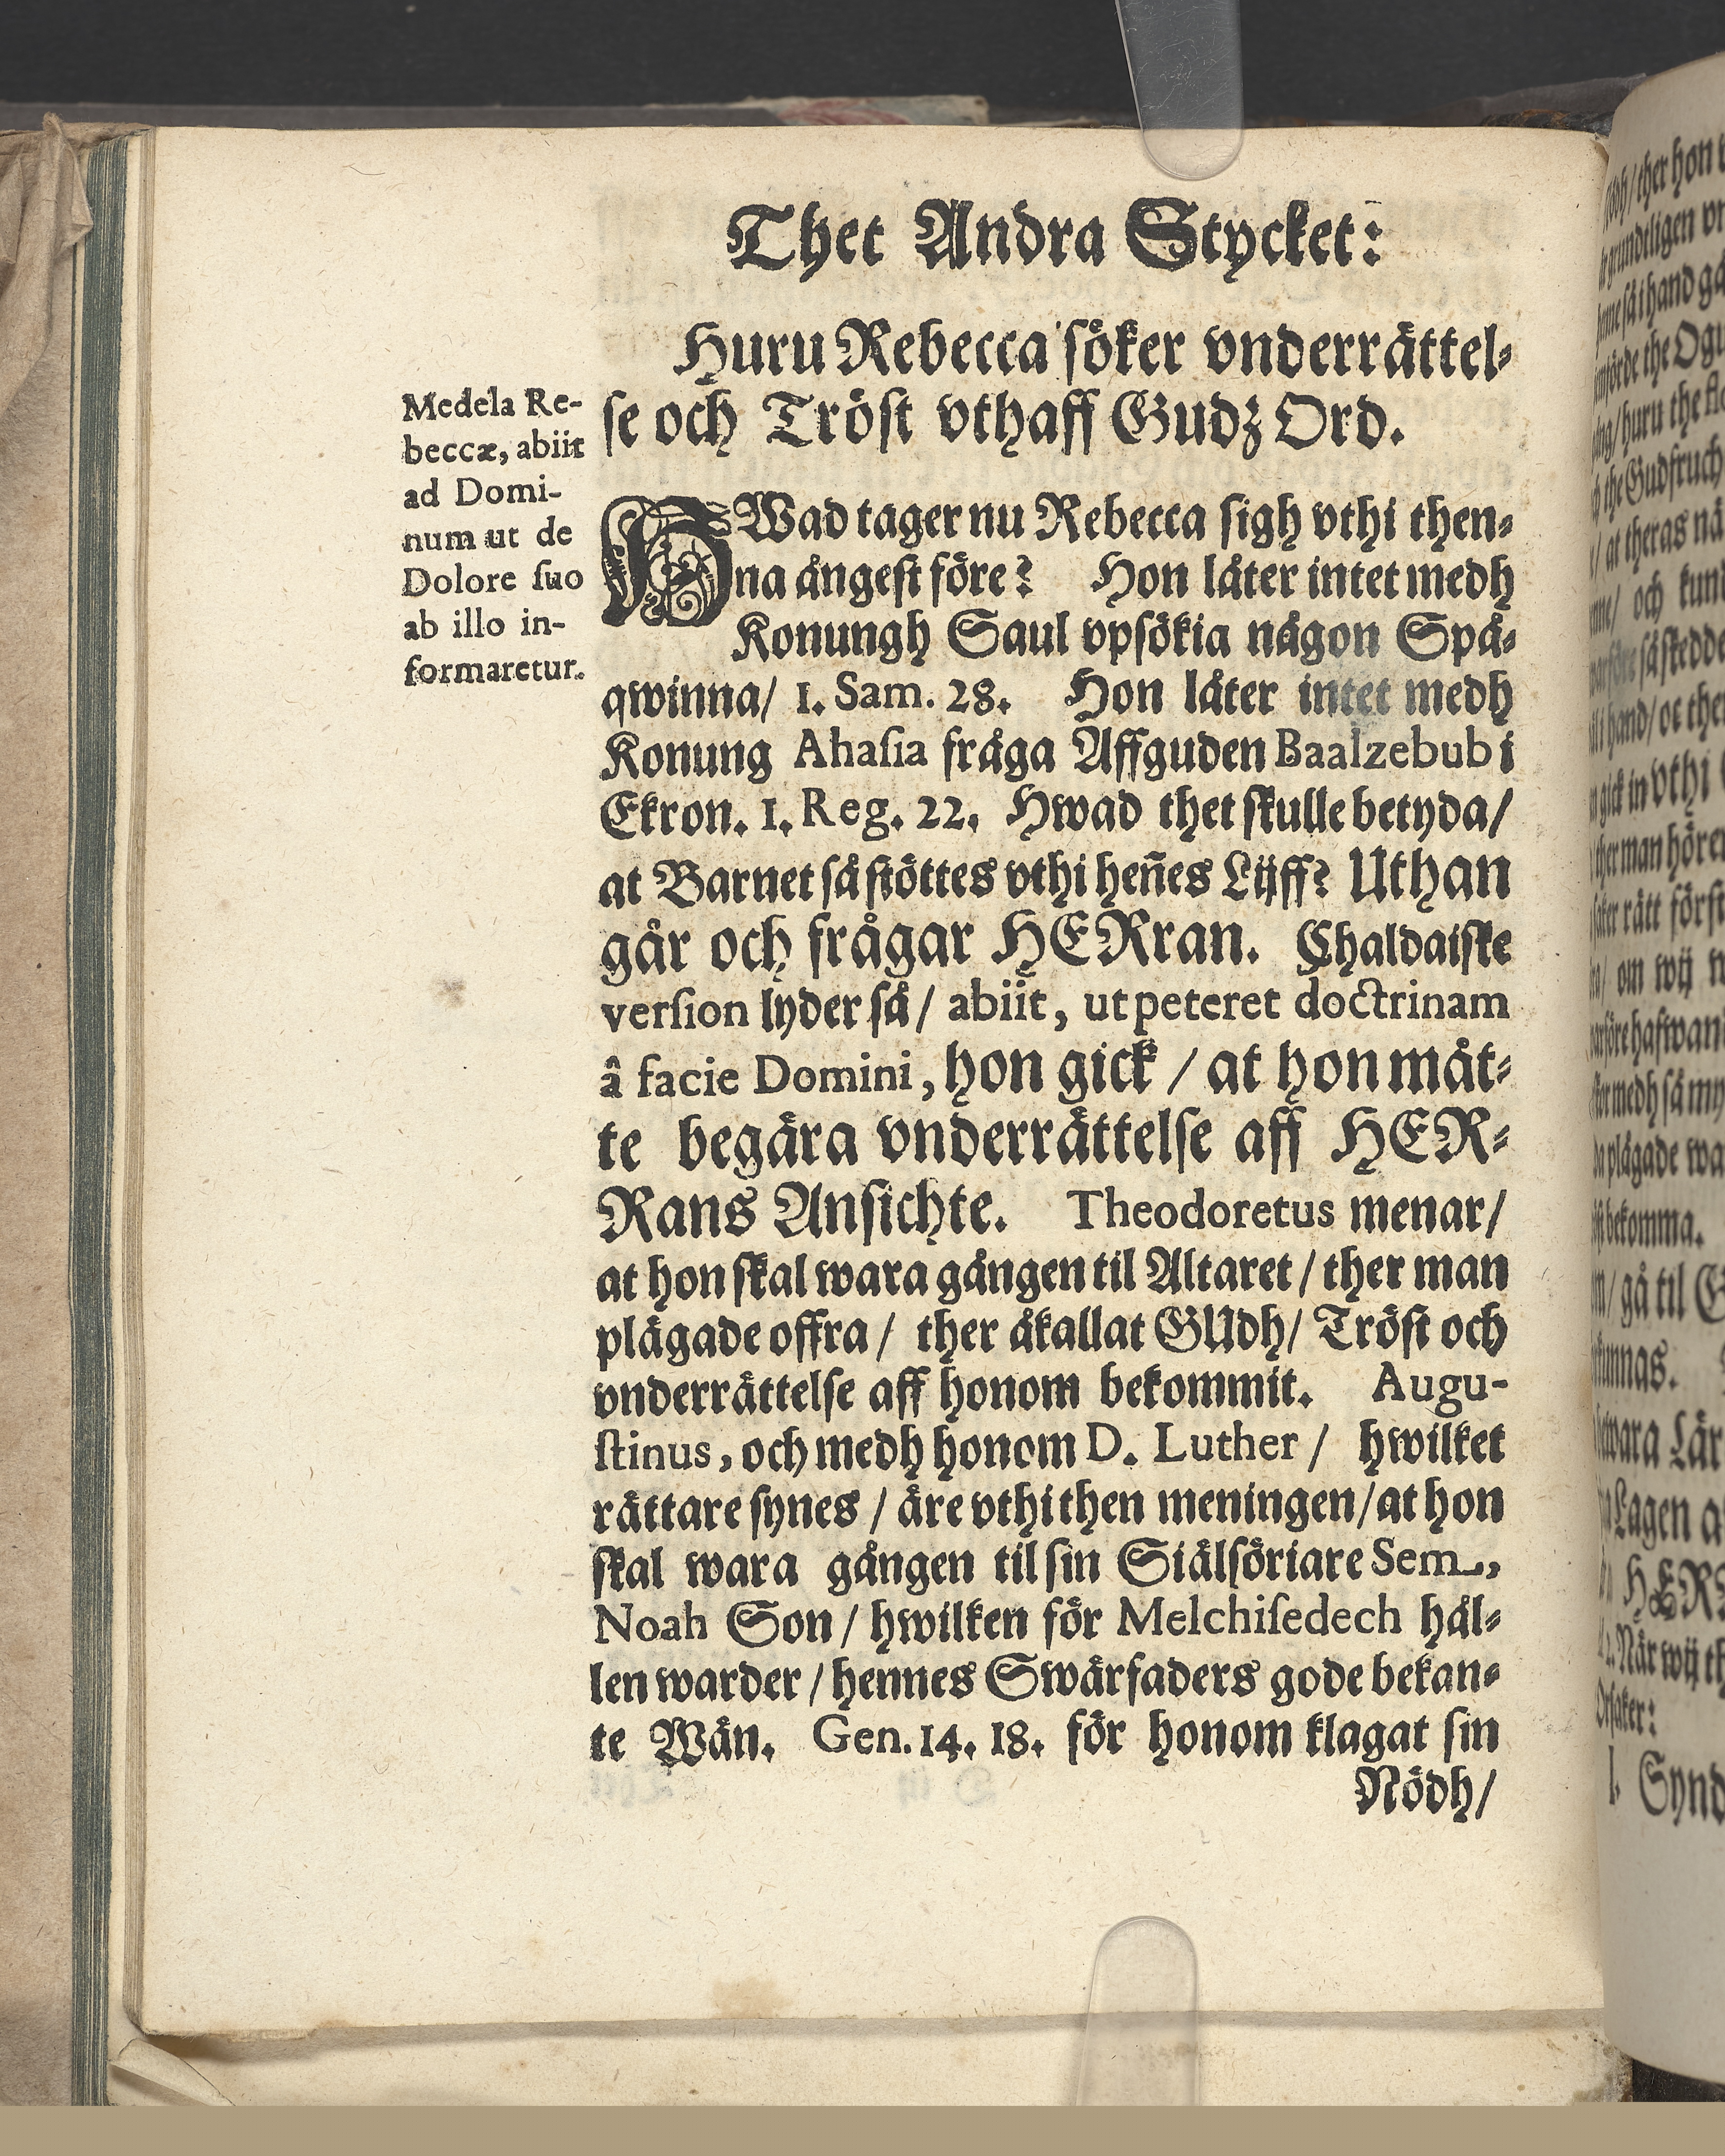 Thet Andra Stycket:
Huru Rebecca söker vnderrättel-
se och Tröst vthaff Gudz Ord.
Medela Re-
beccæ, abiit
ad Domi-
num ut de
Dolore suo
ab illo in-
formaretur.
HWad tager nu Rebecca sigh vthi then-
na ångest före? Hon låter intet medh
Konungh Saul vpsökia någon Spå-
qwinna/ 1. Sam. 28. Hon låter intet medh
Konung Ahasia fråga Affguden Baalzebub i
Ekron. 1. Reg. 22. Hwad thet skulle betyda/
at Barnet så stöttes vthi heñes Lijff? Uthan
går och frågar HERran. Chaldaiske
version lyder så/ abiit, ut peteret doctrinam
â facie Domini, hon gick / at hon måt-
te begära vnderrättelse aff HER-
Rans Ansichte. Theodoretus menar/
at hon skal wara gången til Altaret / ther man
plägade offra / ther åkallat GUdh/ Tröst och
vnderrättelse aff honom bekommit. Augu-
stinus, och medh honom D. Luther / hwilket
rättare synes / äre vthi then meningen/ at hon
skal wara gången til sin Siälsöriare Sem,
Noah Son / hwilken för Melchisedech hål-
len warder / hennes Swärfaders gode bekan-
te Wän. Gen. 14. 18. för honom klagat sin
Nödh/